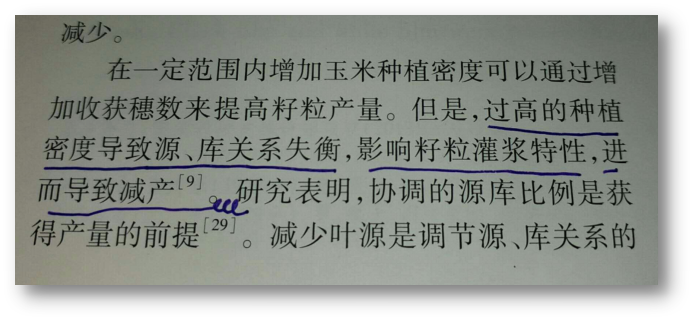 减少。
在一定范围内增加玉米种植密度可以通过增
加收获穗数来提高籽粒产量。但是,过高的种植
密度导致源、库关系失衡,影响籽粒灌浆特性,进
而导致减产[9]。研究表明,协调的源库比例是获
得产量的前提[29]。减少叶源是调节源、库关系的